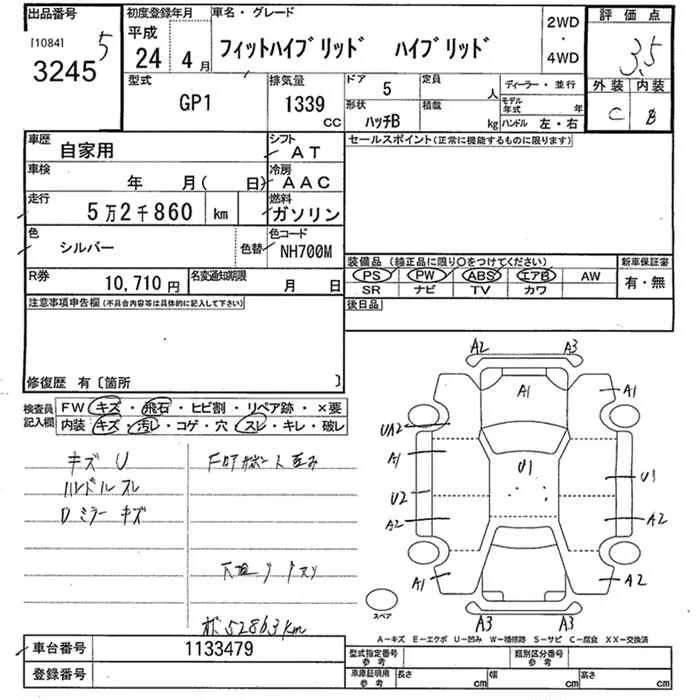 出品番号
[1084]
3245 5
初度登録年月
平成
24 4月
車名・グレード
フィットハイブリッド ハイブリッド
2WD
・
4WD
評価点
3.5
外装 内装
C B
型式
GP1
排気量
1339
CC
ドア
5
定員
人
形状
ハッチB
積載
kg
ディーラー・並行
モデル年式 年
ハンドル 左・右
車歴
自家用
シフト
AT
車検
年 月( 日)
冷房
AAC
走行
5万2千860 km
燃料
ガソリン
色
シルバー
色替
色コード
NH700M
R券
10,710円
名変通知期限
月 日
セールスポイント(正常に機能するものに限ります)
装備品 (純正品に限り〇をつけてください)
PS PW ABS エアB AW
SR ナビ TV カワ
新車保証書
有・無
後日品
注意事項申告欄(不具合内容等は具体的に記入して下さい)
修復歴 有〔箇所 〕
検査員記入欄
FW キズ・飛石・ヒビ割・リペア跡・×要
内装 キズ・汚レ・コゲ・穴・スレ・キレ・破レ
キズ U
ハンドルスレ
Dミラーキズ
52863km
A2 A3
A1 A1
UA2
A1
U1 U1
U2
A2 A2
A1 A2
A3 A3
スペア
A－キズ E－エクボ U－凹み W－補修跡 S－サビ C－腐食 XX－交換済
車台番号
1133479
登録番号
型式指定番号
参考
類別区分番号
参考
車庫証明用
参考
長さ cm 幅 cm 高さ cm